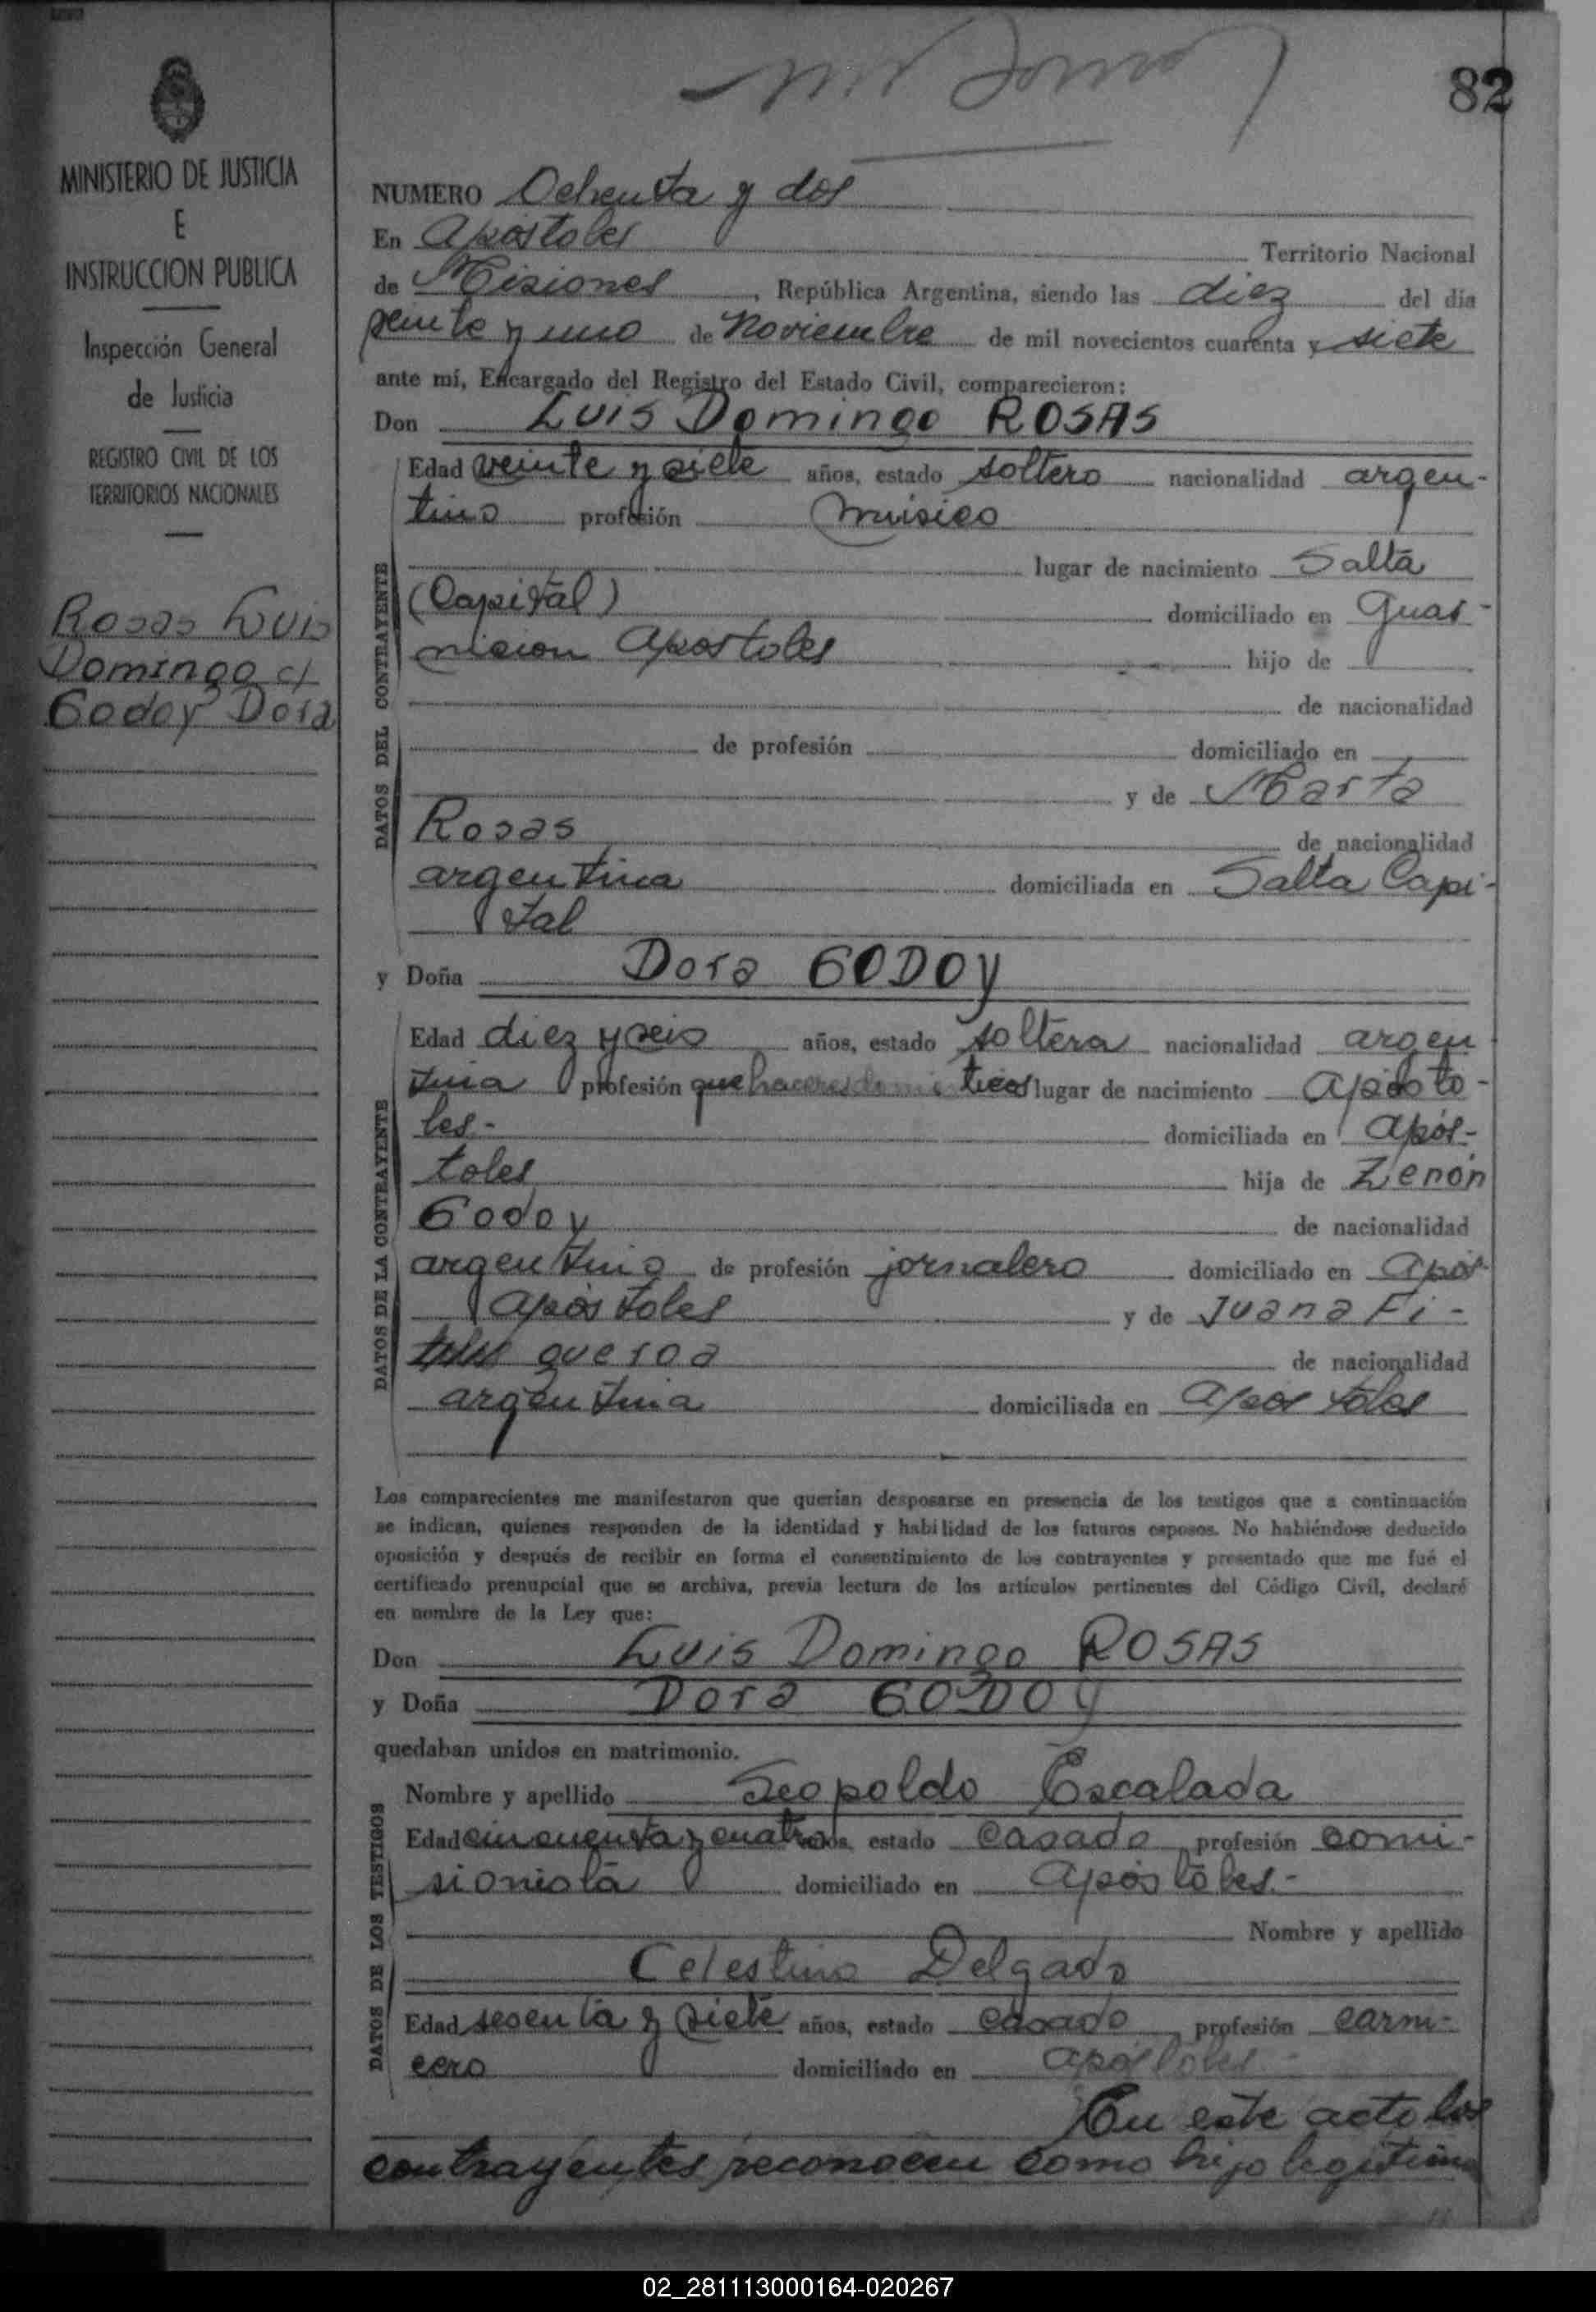 82
MINISTERIO DE JUSTICIA
E
INSTRUCCION PUBLICA
Inspección General
de Justicia
REGISTRO CIVIL DE LOS
TERRITORIOS NACIONALES
Rosas Luis
Domingo c/
Godoy Dora
NUMERO Ochenta y dos
En Apóstoles Territorio Nacional
de Misiones, República Argentina, siendo las diez del día
veinte y uno de Noviembre de mil novecientos cuarenta y siete
ante mí, Encargado del Registro del Estado Civil, comparecieron:
Don Luis Domingo ROSAS
DATOS DEL CONTRAYENTE
Edad veinte y siete años, estado soltero nacionalidad argen-
tino profesión músico
lugar de nacimiento Salta
(Capital) domiciliado en Guar-
nicion Apostoles hijo de
de nacionalidad
de profesión domiciliado en
y de Marta
Rosas de nacionalidad
argentina domiciliada en Salta Capi-
tal
y Doña Dora GODOY
DATOS DE LA CONTRAYENTE
Edad diez y seis años, estado soltera nacionalidad argen
tina profesión quehaceres domésticos lugar de nacimiento Apósto-
les.- domiciliada en Após-
toles hija de Zenón
Godoy de nacionalidad
argentino de profesión jornalero domiciliado en Apos-
Apóstoles y de Juana Fi-
gueroa de nacionalidad
argentina domiciliada en Apostoles
Los comparecientes me manifestaron que querían desposarse en presencia de los testigos que a continuación
se indican, quienes responden de la identidad y habilidad de los futuros esposos. No habiéndose deducido
oposición y después de recibir en forma el consentimiento de los contrayentes y presentado que me fué el
certificado prenupcial que se archiva, previa lectura de los artículos pertinentes del Código Civil, declaré
en nombre de la Ley que:
Don Luis Domingo ROSAS
y Doña Dora GODOY
quedaban unidos en matrimonio.
DATOS DE LOS TESTIGOS
Nombre y apellido Leopoldo Escalada
Edad cincuenta y cuatro años, estado casado profesión comi-
sionista domiciliado en Apóstoles.-
Nombre y apellido
Celestino Delgado
Edad sesenta y siete años, estado casado, profesión carni-
cero domiciliado en Apóstoles -
En este acto los
contrayentes reconocen como hijo legítimo
02_281113000164-020267